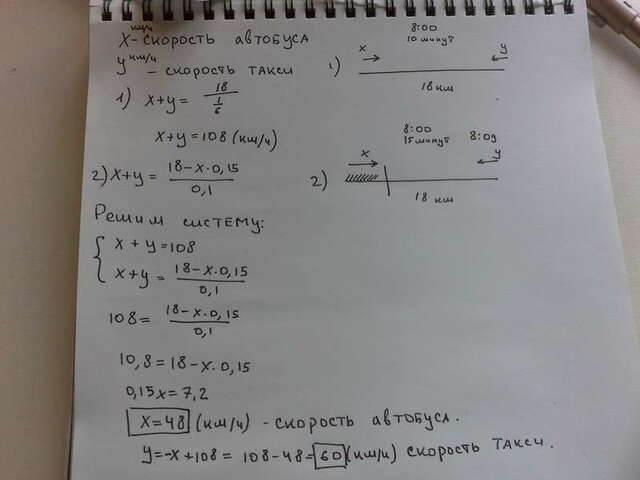 x км/ч - скорость автобуса
y км/ч - скорость такси
1) x+y = 18 / 1/6
x+y=108 (км/ч)
2) x+y = 18-x·0,15 / 0,1
1) x 8:00 10 минут y
18 км
2) x 8:00 15 минут 8:09 y
18 км
Решим систему:
{ x + y = 108
x+y = 18-x·0,15 / 0,1
108 = 18-x·0,15 / 0,1
10,8 = 18-x·0,15
0,15x = 7,2
x=48 (км/ч) - скорость автобуса.
y=-x+108 = 108-48=60 (км/ч) скорость такси.